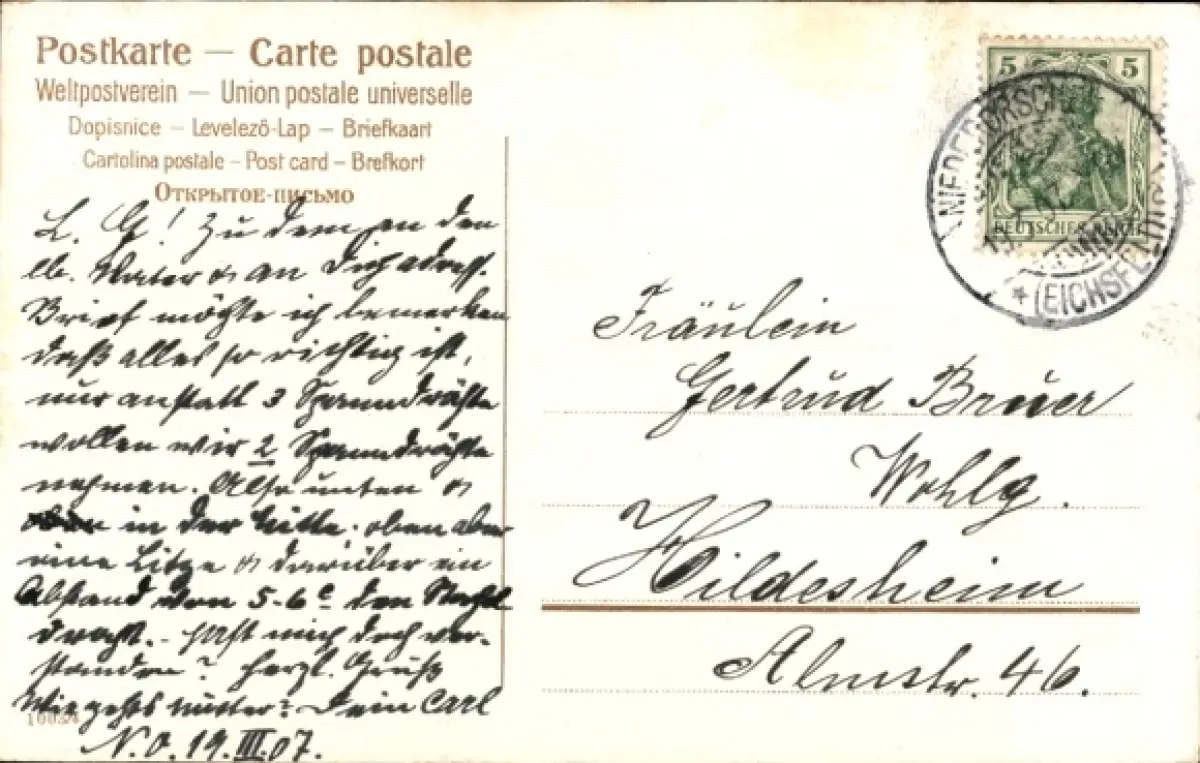 Postkarte — Carte postale
Weltpostverein — Union postale universelle
Dopisnice — Levelező-Lap — Briefkaart
Cartolina postale — Post card — Brefkort
Открытое-письмо
L. G! Zu dem an den
lb. Vater & an Dich adress.
Brief möchte ich bemerken
daß alles so richtig ist,
nur anstatt 3 Spanndrähte
wollen wir 2 Spanndrähte
nehmen. Also unten &
in der Mitte. oben aber
eine Litze & darüber ein
Abstand von 5-6 c den
draht. – hast mich doch ver-
standen? herzl. Gruß
Wie gehts Mutter? Dein Carl
N.O. 19.III.07.
10034
5 5
DEUTSCHES REICH
NIEDERORSCHEL
(EICHSFELD)
19.3.07
Fräulein
Gertrud Brüer
Wohlg.
Hildesheim
Almstr. 46.